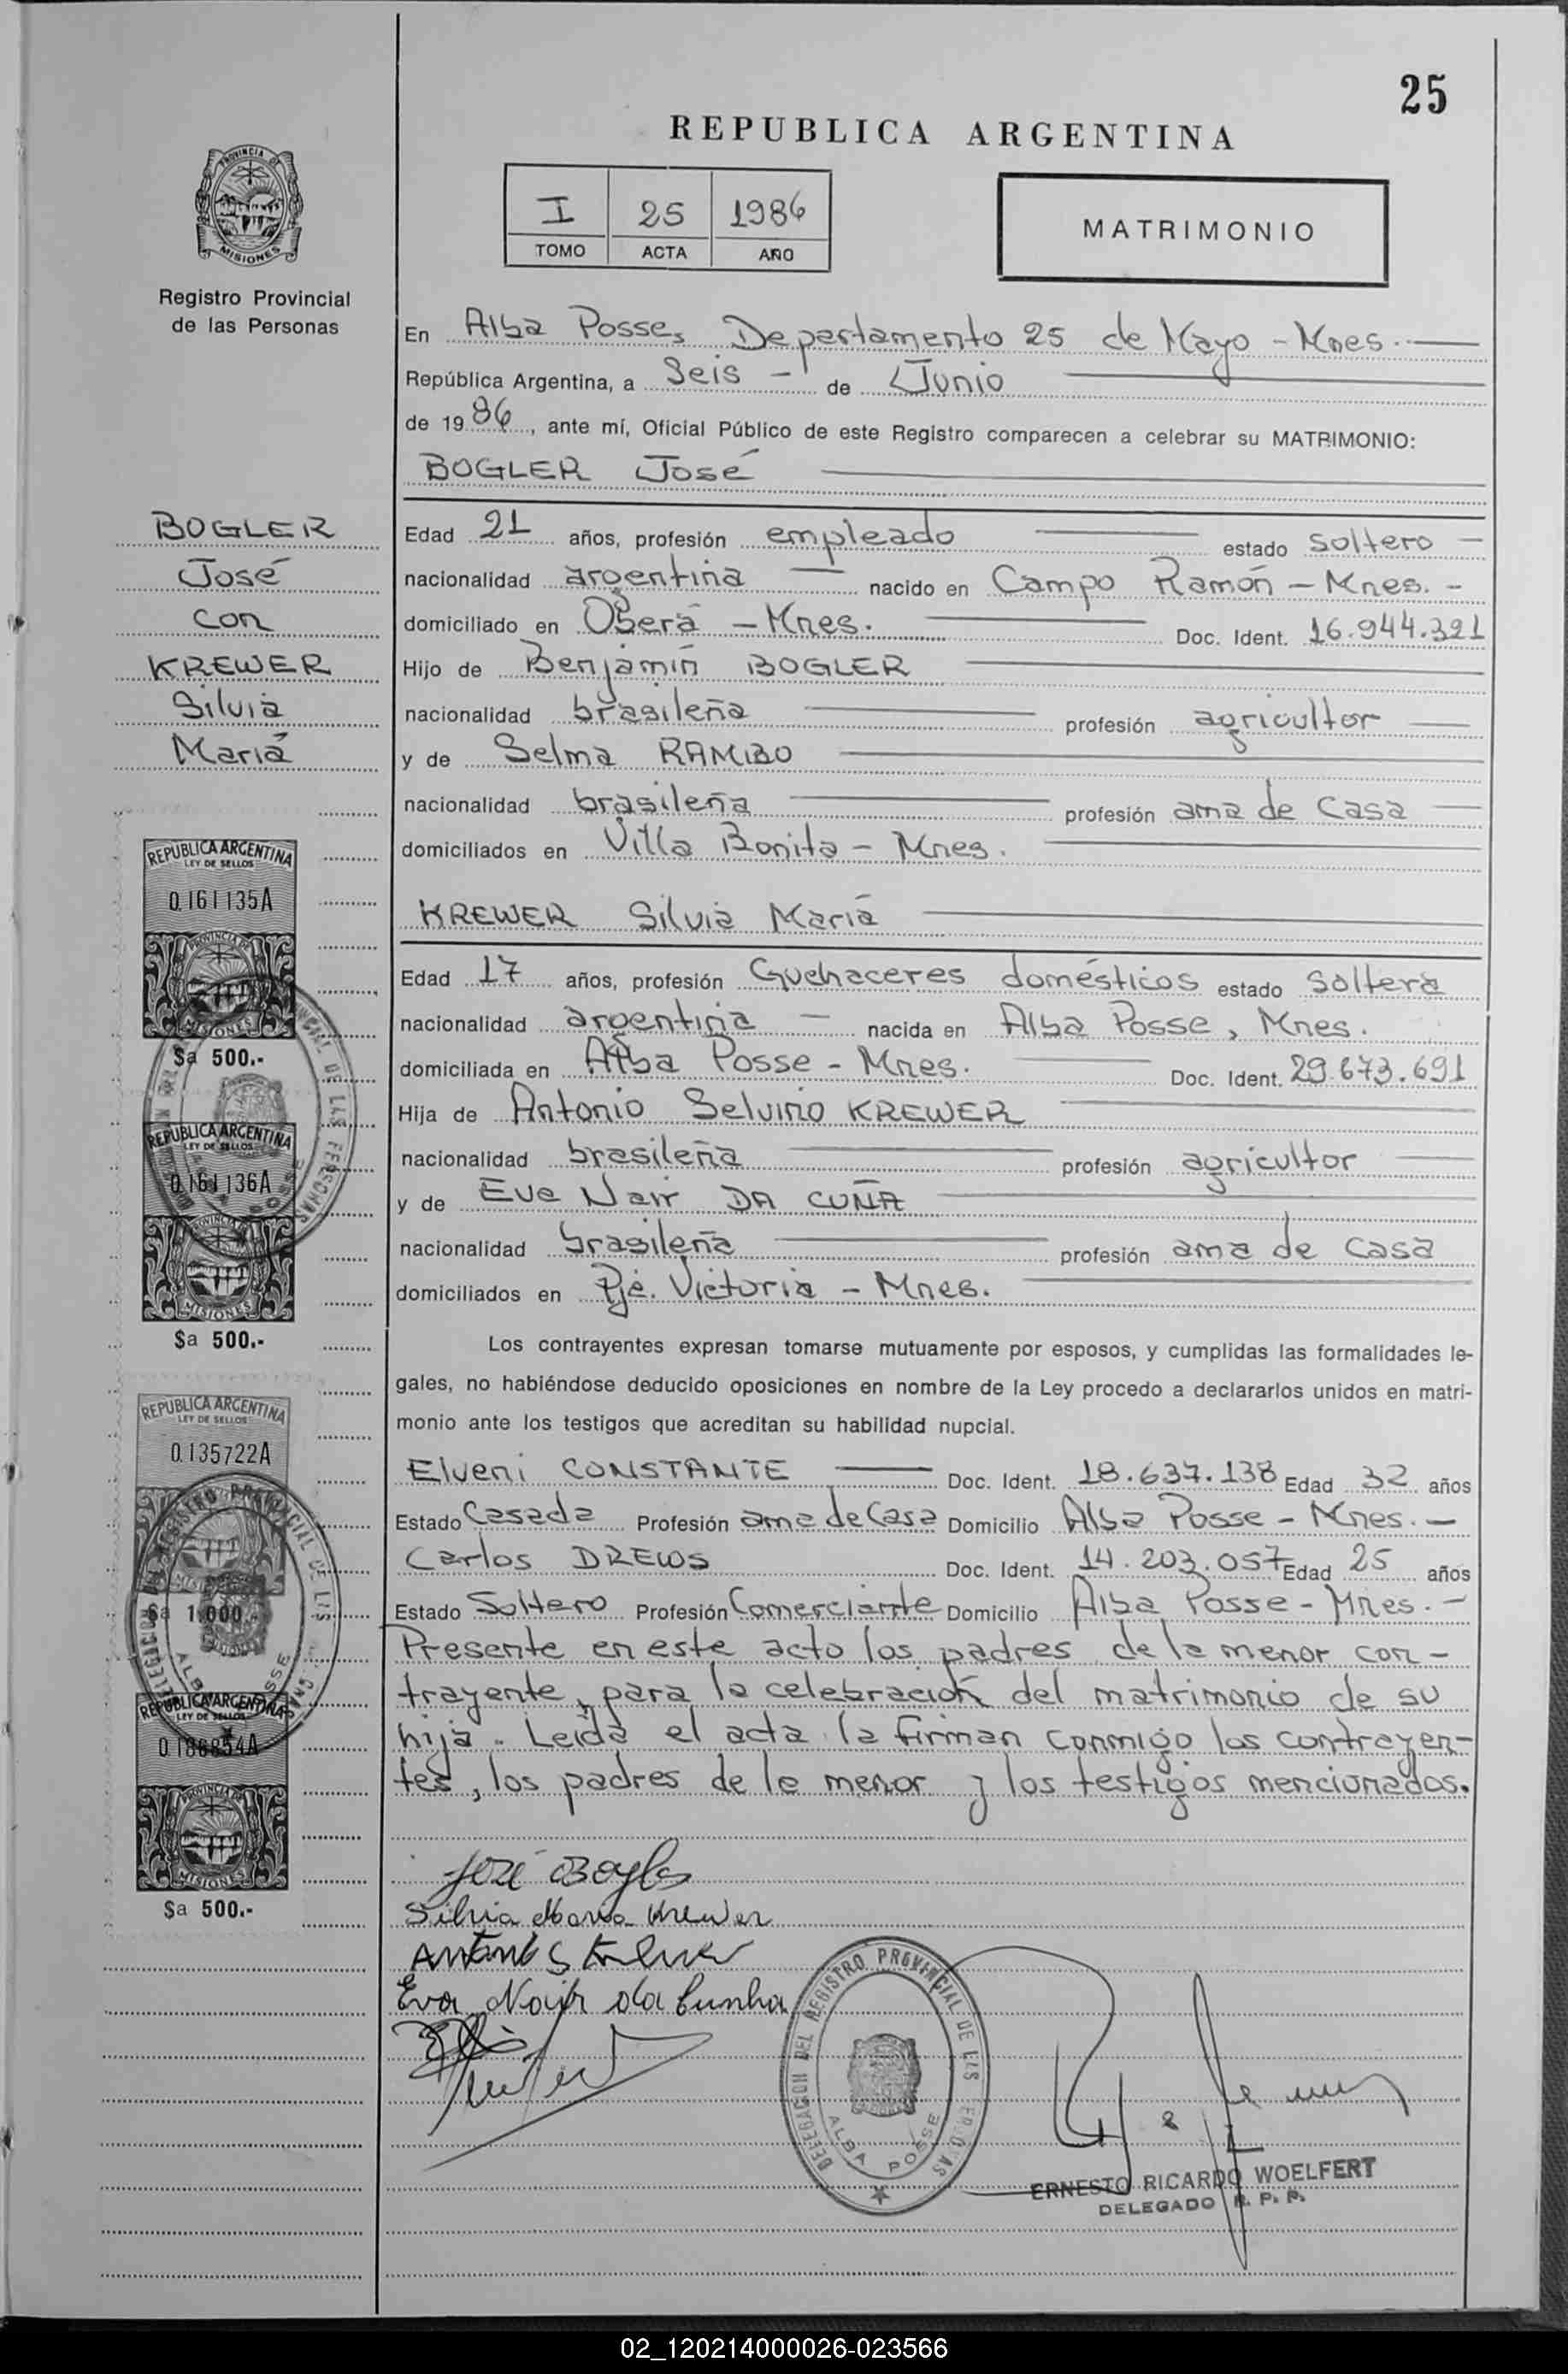 25
REPUBLICA ARGENTINA
I 25 1986
TOMO ACTA AÑO
MATRIMONIO
PROVINCIA DE
MISIONES
Registro Provincial
de las Personas
En Alba Posse, Departamento 25 de Mayo - Mnes.
República Argentina, a Seis - de Junio
de 1986, ante mí, Oficial Público de este Registro comparecen a celebrar su MATRIMONIO:
BOGLER José
BOGLER
José
con
KREWER
Silvia
María
Edad 21 años, profesión empleado estado soltero
nacionalidad argentina nacido en Campo Ramón - Mnes. -
domiciliado en Oberá - Mnes. Doc. Ident. 16.944.321
Hijo de Benjamín BOGLER
nacionalidad brasileña profesión agricultor
y de Selma RAMBO
nacionalidad brasileña profesión ama de casa
domiciliados en Villa Bonita - Mnes.
KREWER Silvia María
Edad 17 años, profesión Quehaceres domésticos estado soltera
nacionalidad argentina nacida en Alba Posse, Mnes.
domiciliada en Alba Posse - Mnes. Doc. Ident. 29.673.691
Hija de Antonio Selvino KREWER
nacionalidad brasileña profesión agricultor
y de Eva Nair DA CUÑA
nacionalidad brasileña profesión ama de casa
domiciliados en Pje. Victoria - Mnes.
Los contrayentes expresan tomarse mutuamente por esposos, y cumplidas las formalidades le-
gales, no habiéndose deducido oposiciones en nombre de la Ley procedo a declararlos unidos en matri-
monio ante los testigos que acreditan su habilidad nupcial.
Elveni CONSTANTE Doc. Ident. 18.637.138 Edad 32 años
Estado Casada Profesión ama de casa Domicilio Alba Posse - Mnes. -
Carlos DREWS Doc. Ident. 14.203.057 Edad 25 años
Estado Soltero Profesión Comerciante Domicilio Alba Posse - Mnes. -
Presente en este acto los padres de la menor con-
trayente, para la celebración del matrimonio de su
hija. Leída el acta la firman conmigo los contrayen-
tes, los padres de la menor y los testigos mencionados.
REPUBLICA ARGENTINA
LEY DE SELLOS
0.161135A
PROVINCIA DE
MISIONES
$a 500.-
REPUBLICA ARGENTINA
LEY DE SELLOS
0.161136A
PROVINCIA DE
MISIONES
$a 500.-
REPUBLICA ARGENTINA
LEY DE SELLOS
0.135722A
$a 1.000.-
REPUBLICA ARGENTINA
LEY DE SELLOS
PROVINCIA DE
MISIONES
$a 500.-
José Bogler
Silvia Maria Krewer
Antonio S Krewer
Eva Nair da Cunha
DELEGACION DEL REGISTRO PROVINCIAL DE LAS PERSONAS
ALBA POSSE
ERNESTO RICARDO WOELFERT
DELEGADO R. P. P.
02_120214000026-023566